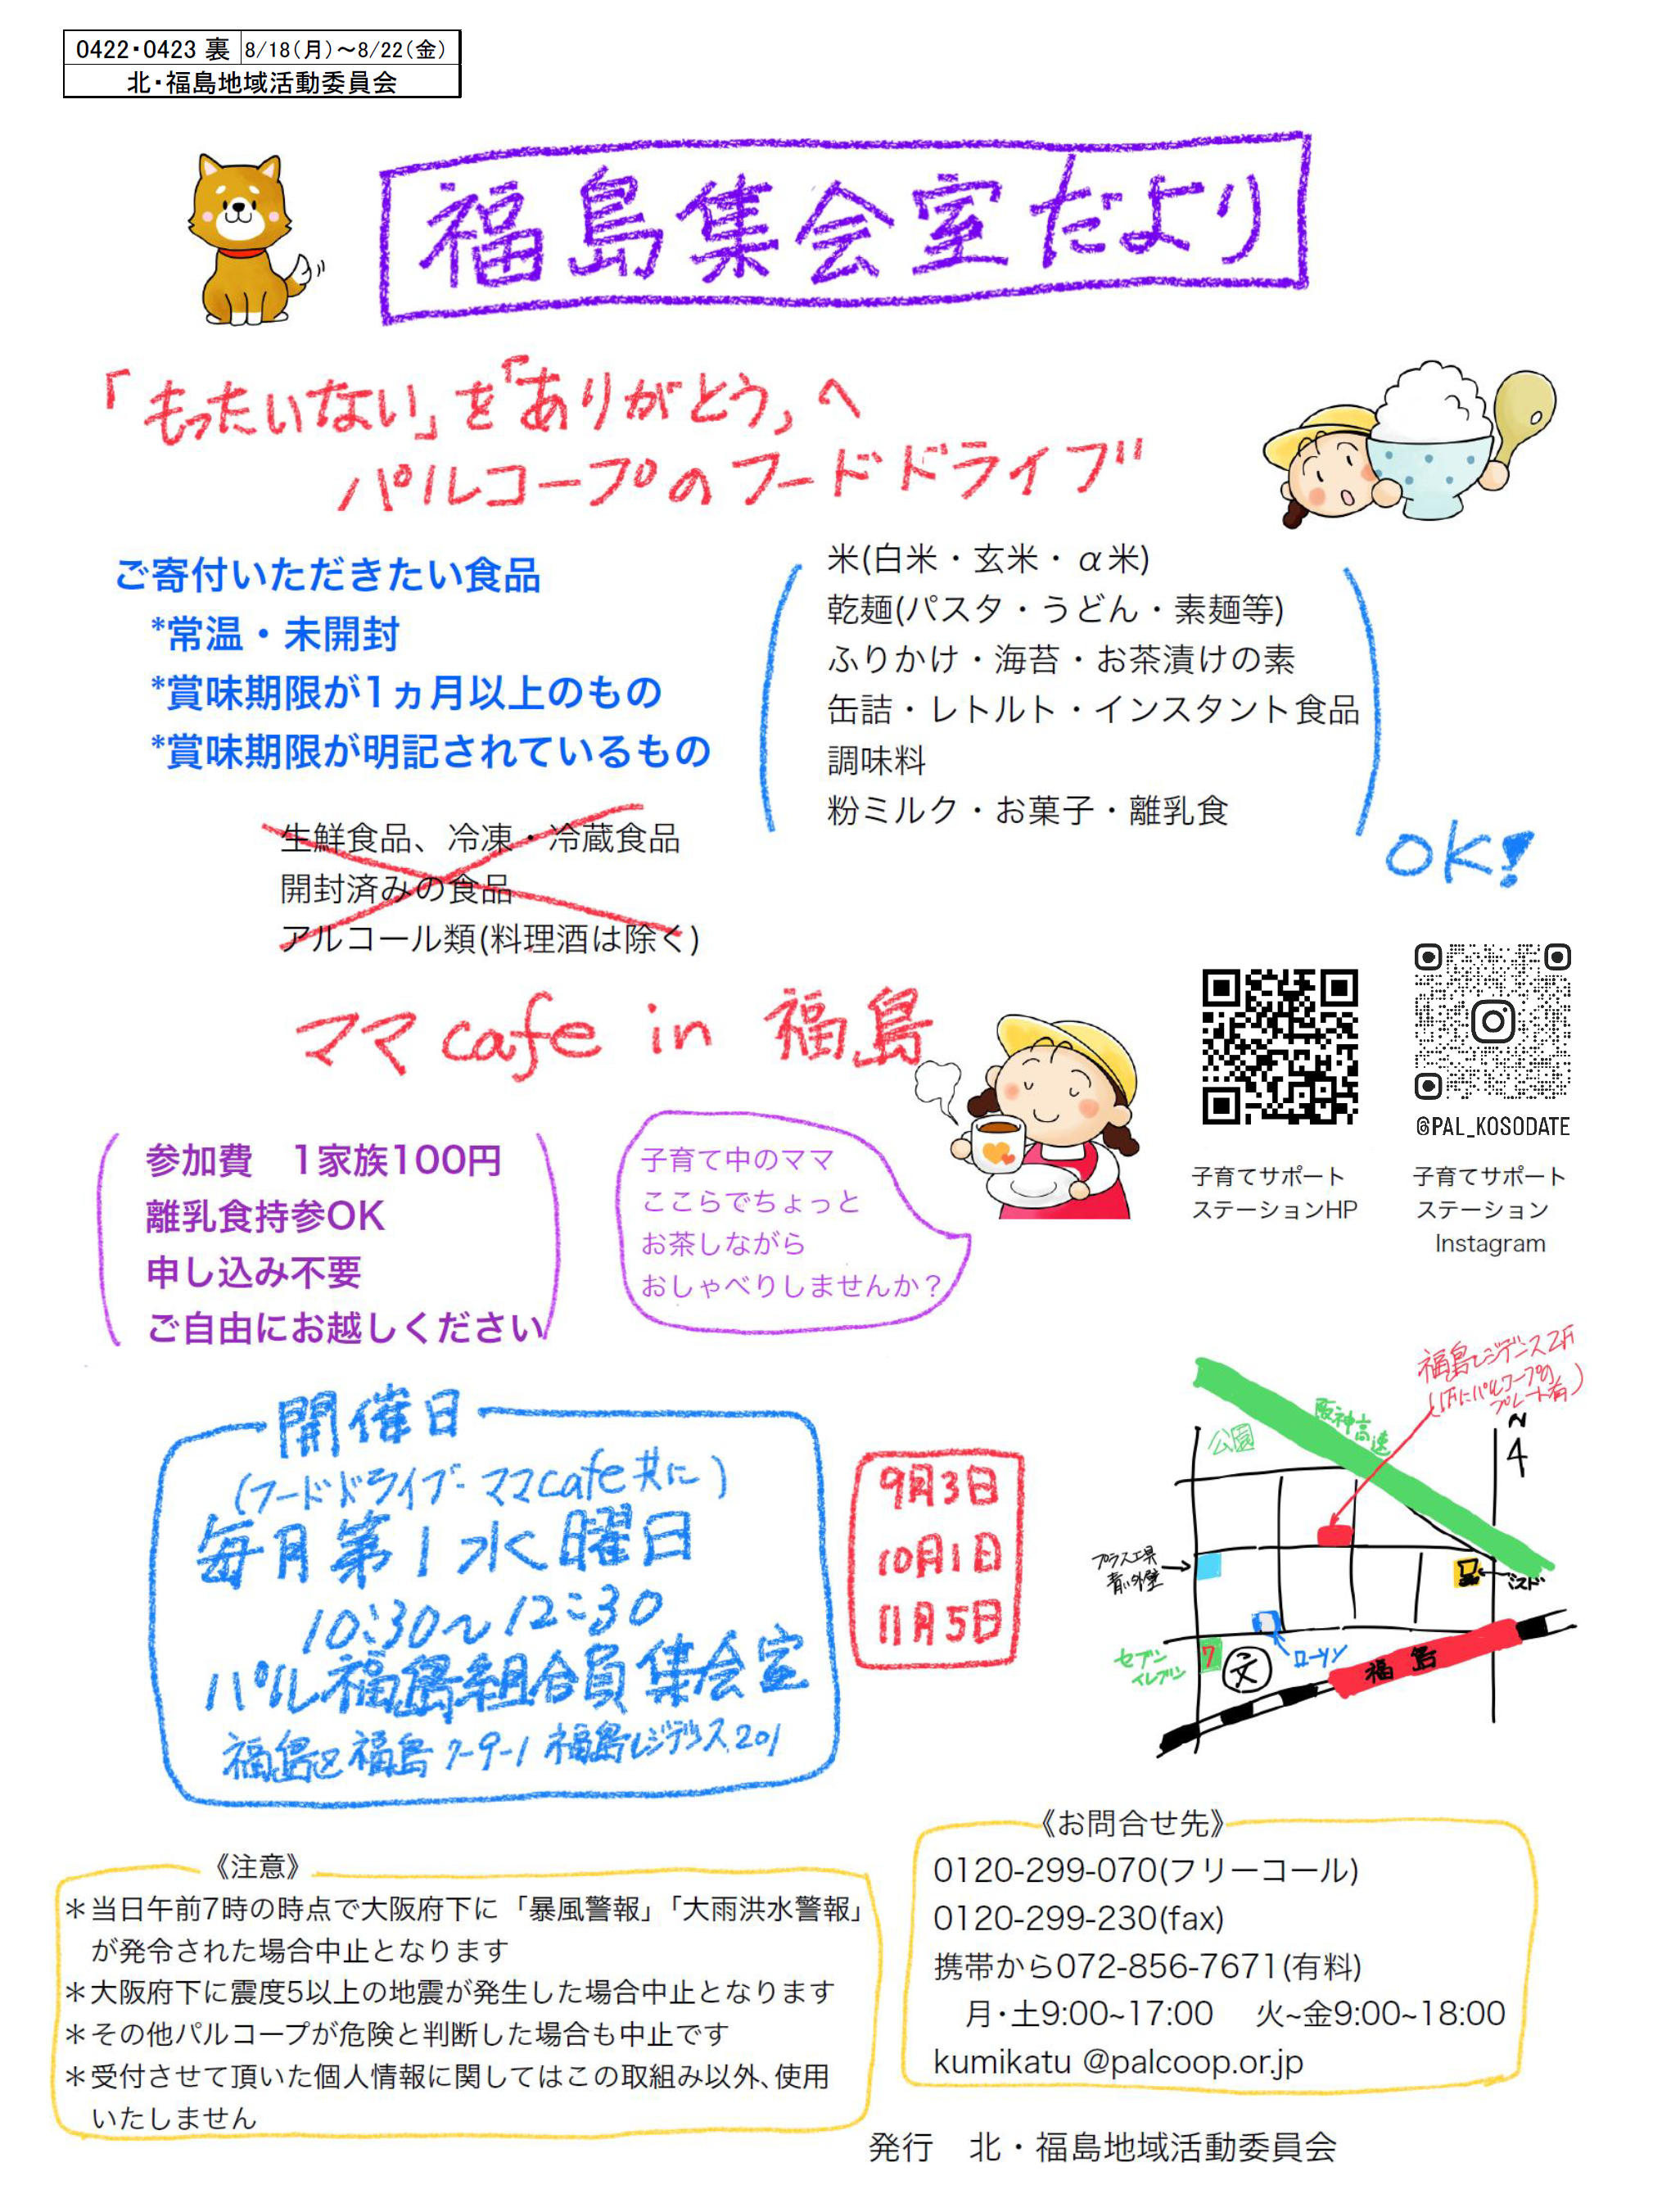 0422・0423 裏 8/18(月)~8/22(金)
北・福島地域活動委員会
福島集会室だより
「もったいない」を「ありがとう」へ
パルコープのフードドライブ
ご寄付いただきたい食品
*常温・未開封
*賞味期限が1ヵ月以上のもの
*賞味期限が明記されているもの
米(白米・玄米・α米)
乾麺(パスタ・うどん・素麺等)
ふりかけ・海苔・お茶漬けの素
缶詰・レトルト・インスタント食品
調味料
粉ミルク・お菓子・離乳食
OK!
生鮮食品、冷凍・冷蔵食品
開封済みの食品
アルコール類(料理酒は除く)
ママcafe in 福島
参加費　1家族100円
離乳食持参OK
申し込み不要
ご自由にお越しください
子育て中のママ
ここらでちょっと
お茶しながら
おしゃべりしませんか?
@PAL_KOSODATE
子育てサポート
ステーションHP
子育てサポート
ステーション
Instagram
開催日
(フードドライブ・ママcafe共に)
毎月第1水曜日
10:30~12:30
パル福島組合員集会室
福島区福島7-9-1 福島レジデンス201
9月3日
10月1日
11月5日
福島レジデンス2F
(1Fにパルコープの
プレート有)
阪神高速
公園
N
4
プラス工具
青い外壁
ミスド
セブン
イレブン
7
文
ローソン
福島
《注意》
＊当日午前7時の時点で大阪府下に「暴風警報」「大雨洪水警報」
が発令された場合中止となります
＊大阪府下に震度5以上の地震が発生した場合中止となります
＊その他パルコープが危険と判断した場合も中止です
＊受付させて頂いた個人情報に関してはこの取組み以外、使用
いたしません
《お問合せ先》
0120-299-070(フリーコール)
0120-299-230(fax)
携帯から072-856-7671(有料)
月・土9:00~17:00　火~金9:00~18:00
kumikatu @palcoop.or.jp
発行　北・福島地域活動委員会